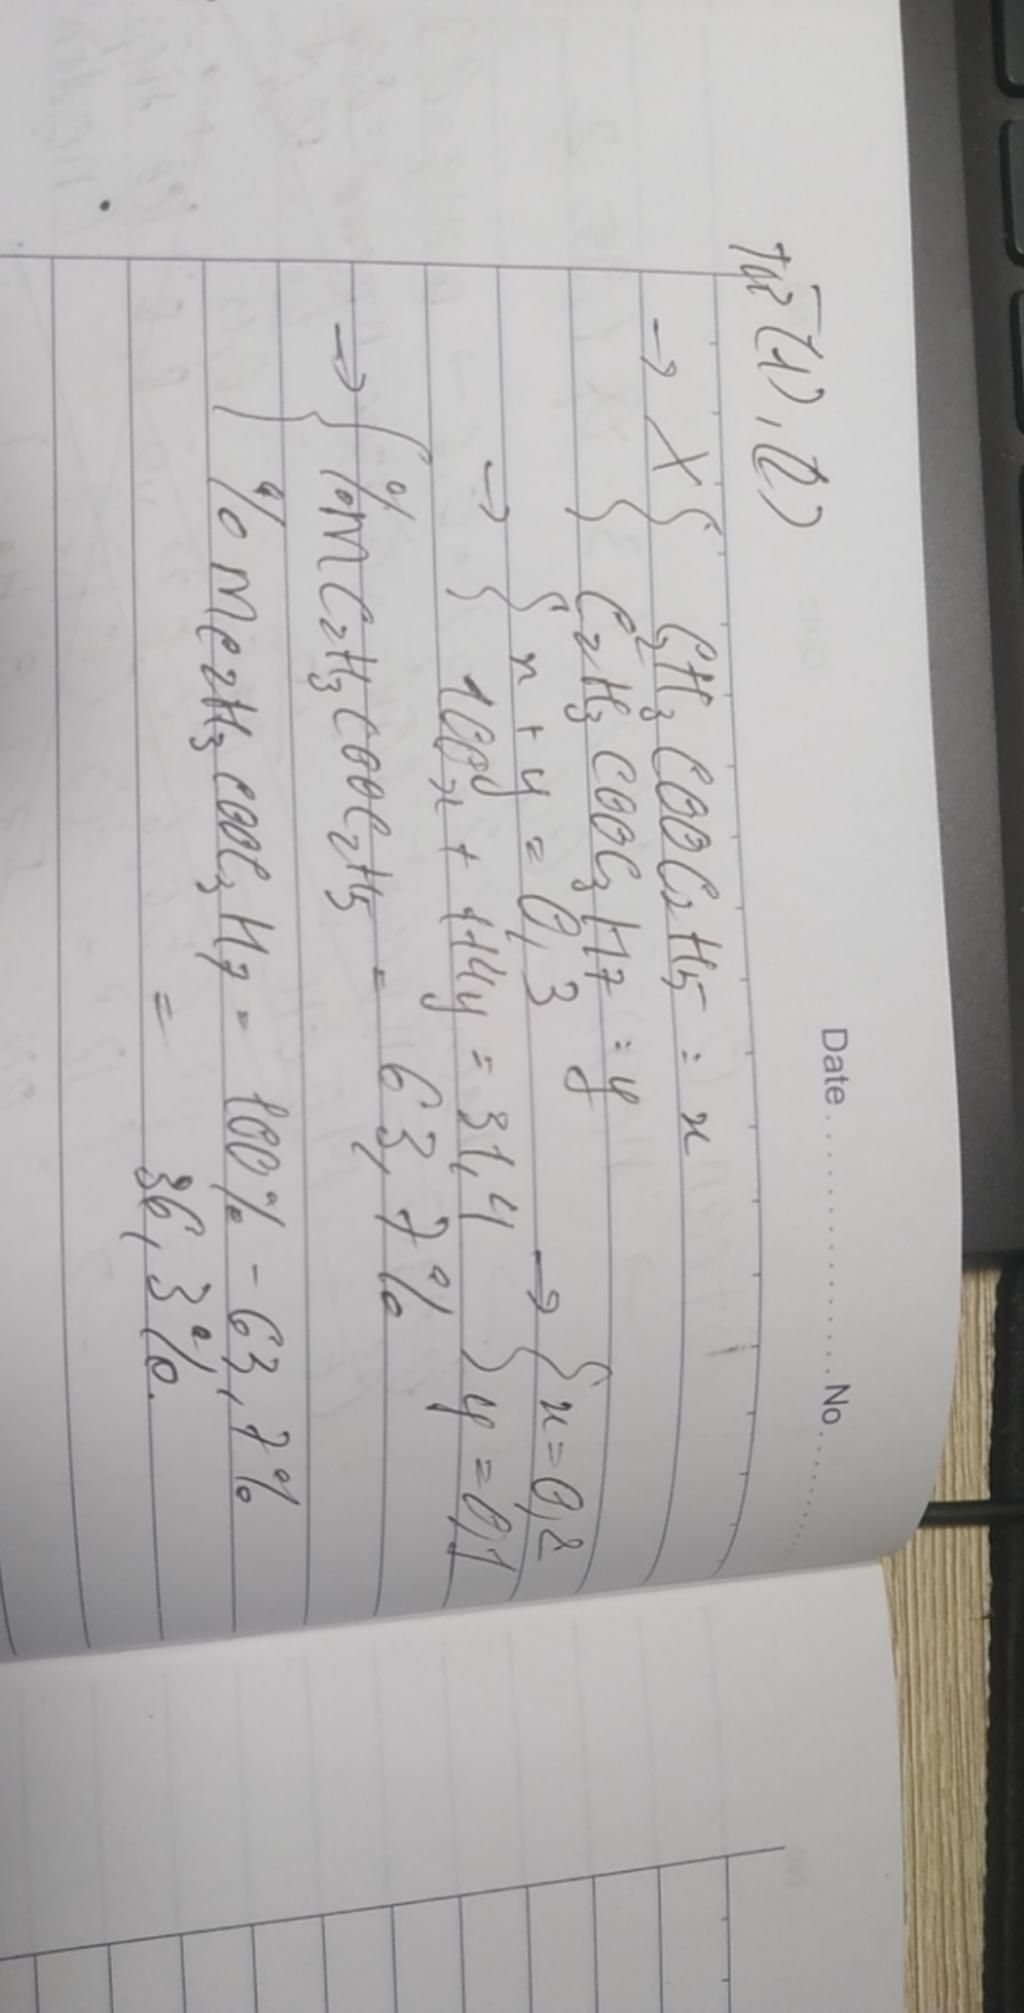 Date .................... No. ..........
Từ (1), (2)
→ X { C₂H₃COOC₂H₅ : x
{ C₂H₃COOC₃H₇ : y
→ { x + y = 0,3 → { x = 0,2
{ 100x + 114y = 31,4 { y = 0,1
→ { %mC₂H₃COOC₂H₅ = 63,7%
{ %mC₂H₃COOC₃H₇ = 100% - 63,7%
= 36,3%.